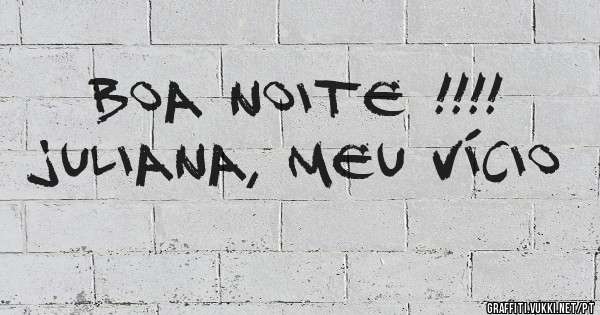 BOA NOITE !!!!
JULIANA, MEU VÍCIO
GRAFFITI.VUKKI.NET/PT